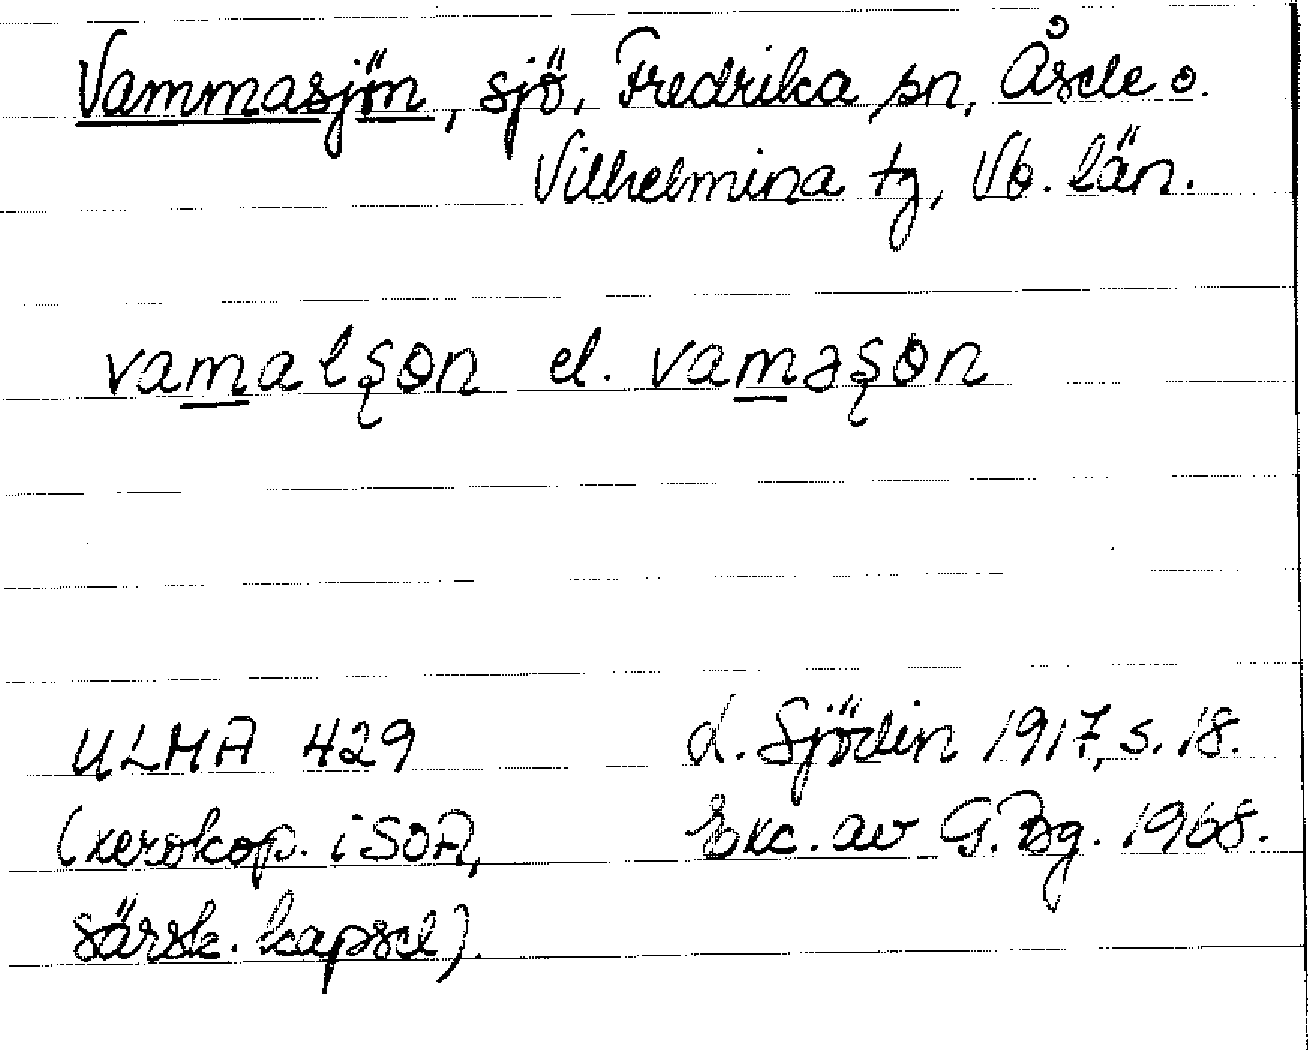 Vammasjön, sjö, Fredrika sn, Åsele o.
Vilhelmina tg, Vb. län.
vamalşɵn el. vaməşɵn
ULMA 429 d. Sjödin 1917, s. 18.
(xerokop. i SOA, Exc. av G. Bg. 1968.
särsk. kapsel).